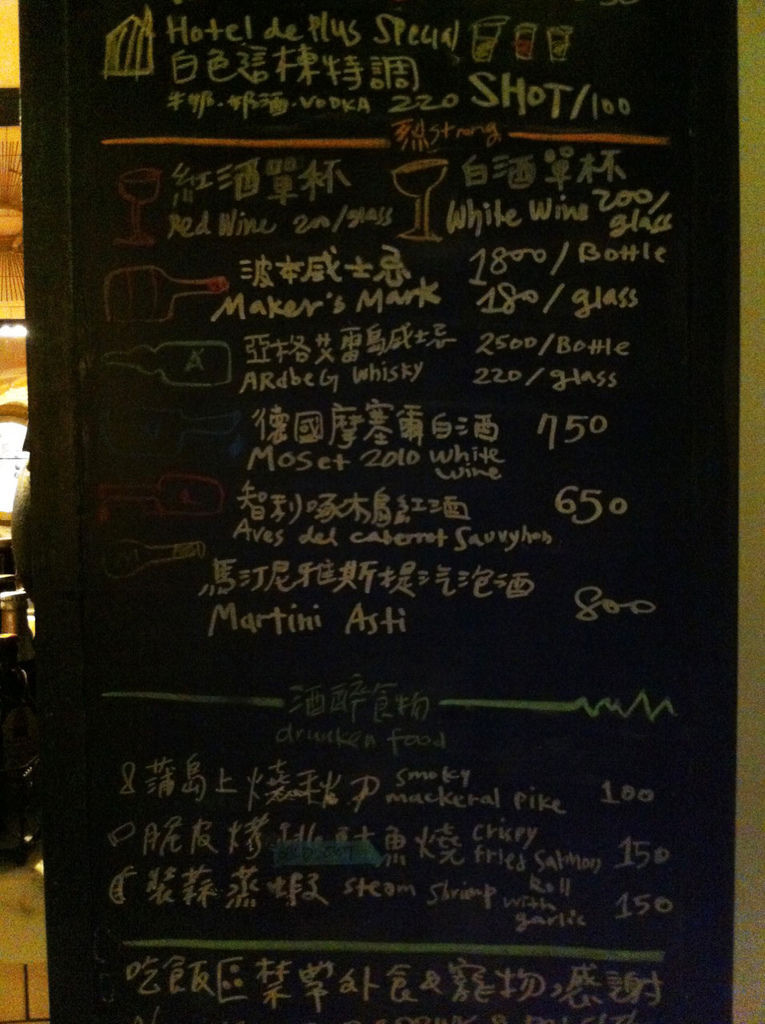 Hotel de Plus Special
白色這棟特調
牛奶.奶酒.VODKA 220 SHOT/100
烈strong
紅酒單杯 白酒單杯
Red Wine 200/glass White Wine 200/glass
波本威士忌 1800/Bottle
Maker's Mark 180/glass
亞格艾雷島威士忌 2500/Bottle
ARdbeG whisky 220/glass
德國摩塞爾白酒 750
Moset 2010 white wine
智利啄木鳥紅酒 650
Aves del cabernet Sauvyhon
馬汀尼雅斯提汽泡酒 800
Martini Asti
酒醉食物
drunken food
蒲島上燒秋刀 smoky mackeral Pike 100
脆皮烤 魚燒 crispy fried salmon 150
蒜蒸蝦 steam shrimp Roll with garlic 150
吃飯區禁帶外食&寵物,感謝